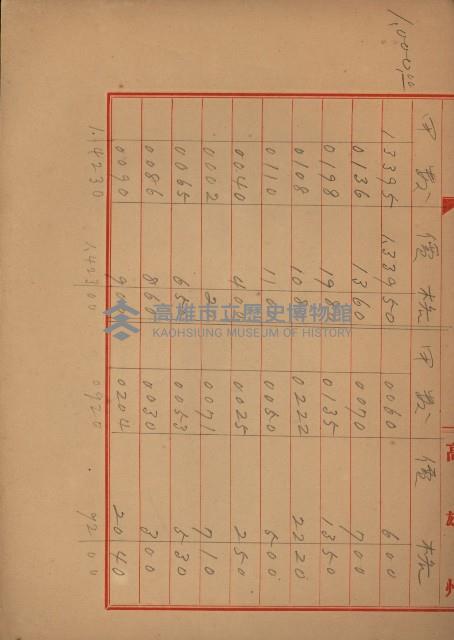 1,000.00
甲数 價格 甲数 價格
1.3395 133950 0060 600
0136 1360 0070 700
0198 1980 0135 1350
0108 1080 0222 2220
0110 1100 0050 500
0040 400 0025 250
0002 20 0071 710
0065 650 0053 530
0086 860 0030 300
0090 900 0204 2040
1.4230 142300 0920 9200
高雄州
高雄市立歷史博物館
KAOHSIUNG MUSEUM OF HISTORY